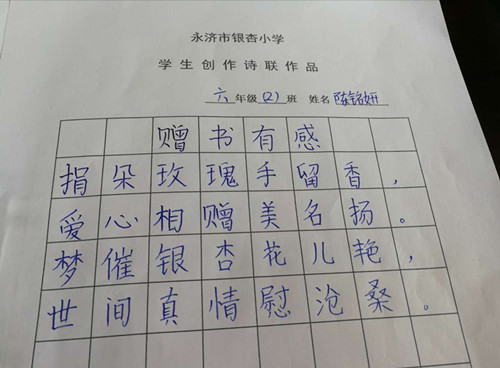 永济市银杏小学
学生创作诗联作品
六年级(2)班 姓名陈铭妍
赠书有感
捐朵玫瑰手留香，
爱心相赠美名扬。
梦催银杏花儿艳，
世间真情慰沧桑。